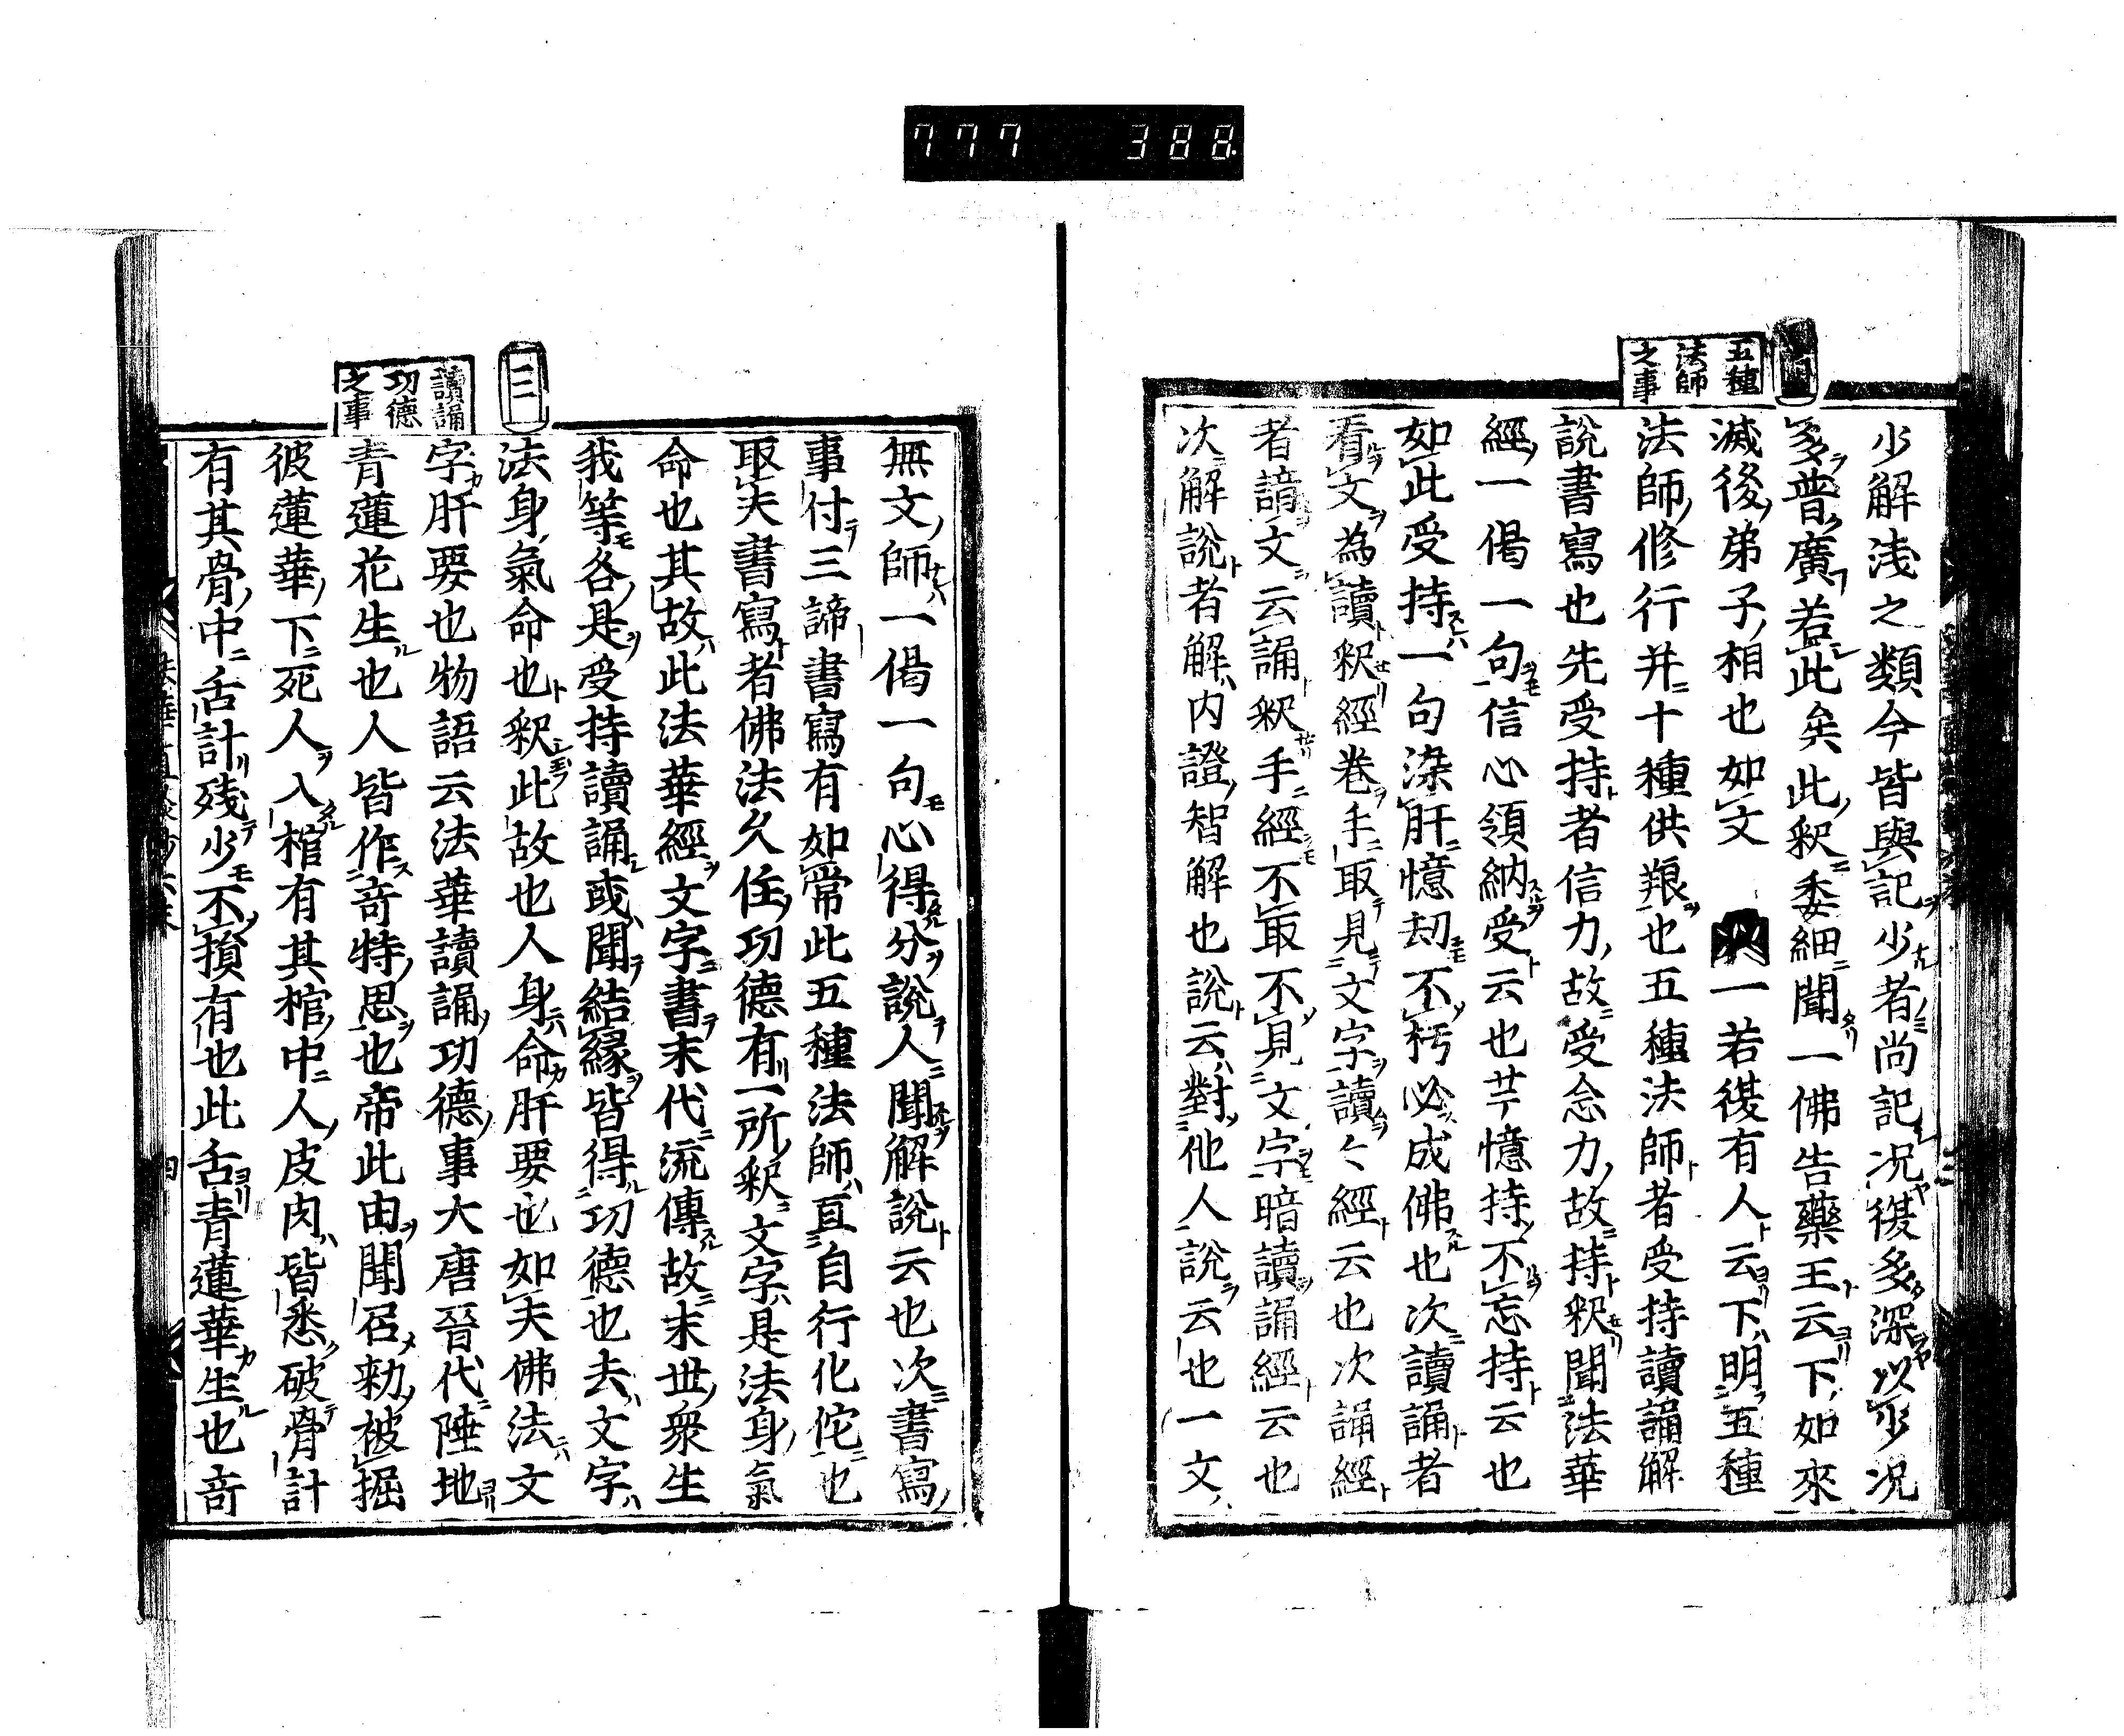 777 388
五種
法師
之事
少解浅之類今皆與記少者尚記况復多深以少况
多普廣若此矣此釈委細聞一佛告藥王云下如來
滅後弟子相也如文 一若復有人云下明五種
法師修行并十種供粮也五種法師者受持讀誦解
說書寫也先受持者信力故受念力故持釈聞法華
經一偈一句信心領納受云也芐憶持不忘持云也
如此受持一句染肝憶刧不朽必成佛也次讀誦者
看文為讀釈經卷手取見文字讀々經云也次誦經
者諳文云誦釈手經不取不見文字暗讀誦經云也
次解說者解内證智解也說云對他人說云也一文
三
讀誦
功德
之事
無文師一偈一句心得分說人聞解說云也次書寫
事付三諦書寫有如常此五種法師直自行化佗也
取夫書寫者佛法久住功德有一所釈文字是法身氣
命也其故此法華經文字書末代流傳故末世衆生
我等各是受持讀誦或聞結緣皆得功德也去文字
法身氣命也釈此故也人身命肝要也如夫佛法文
字肝要也物語云法華讀誦功德事大唐晉代陲地
青蓮花生也人皆作竒特思也帝此由聞召勅被掘
彼蓮華下死人入棺有其棺中人皮肉皆悉破骨計
有其骨中舌計残少不損有也此舌青蓮華生也竒